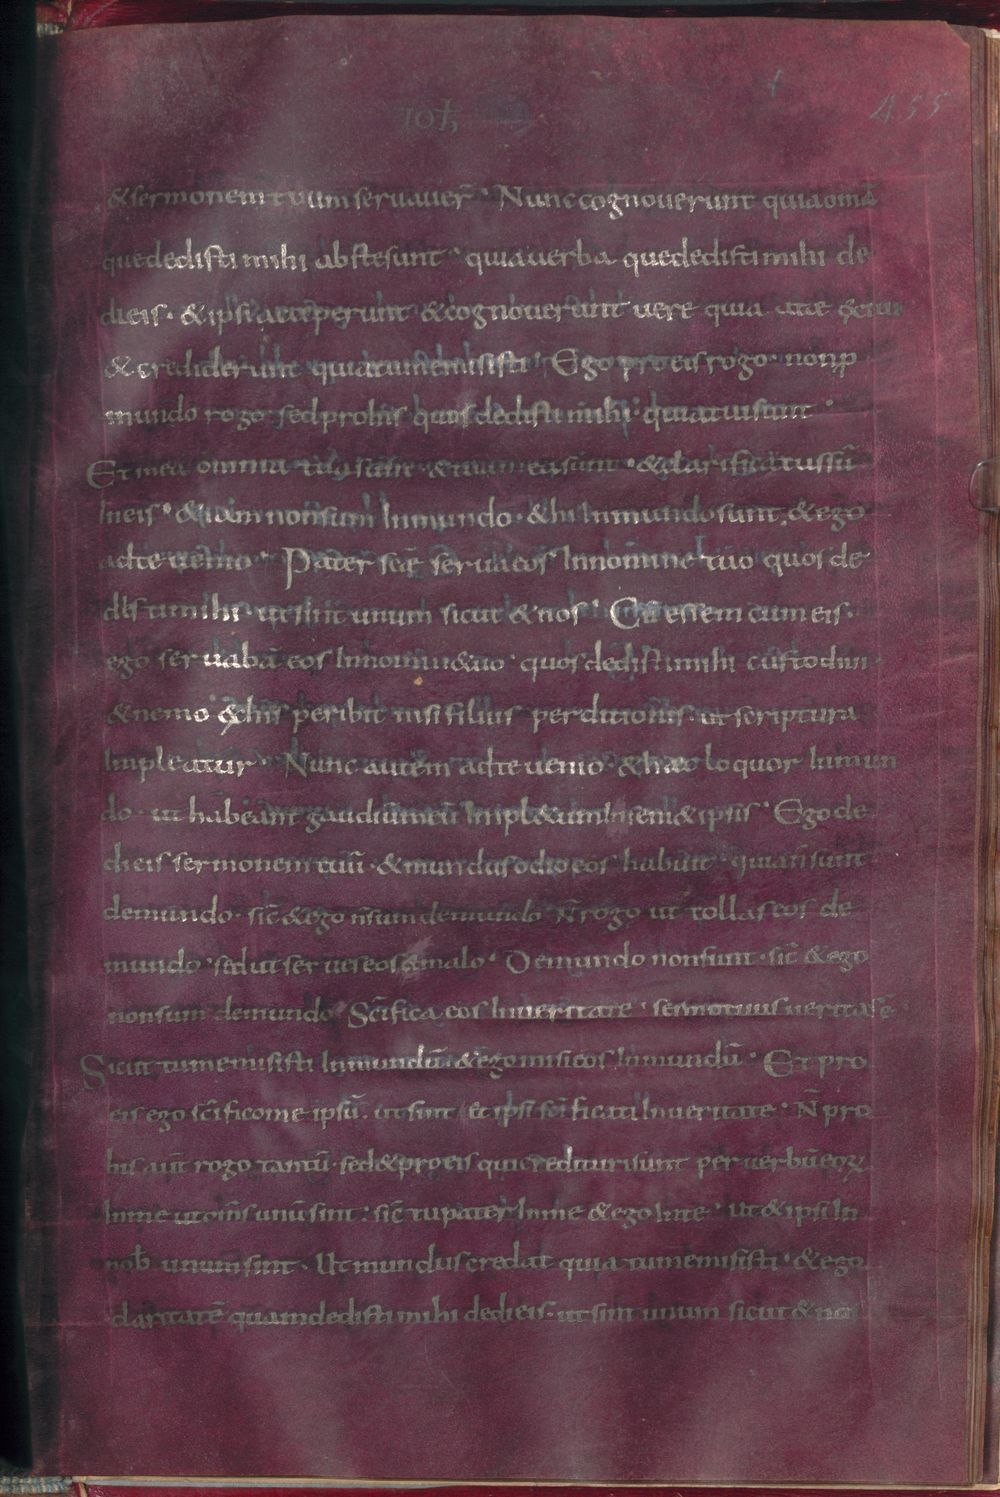 ioh
455
& sermonem tuum servauer̄ · Nunc cognoverunt quia om̄a
que dedisti mihi abs te sunt · quia verba que dedisti mihi de
di eis · & ipsi acceperunt & cognoverunt vere quia a te
& crediderunt quia tu me misisti · Ego pro eis rogo · non p̄
mundo rogo sed pro his quos dedisti mihi · quia tui sunt ·
Et mea omnia tua sunt · & tua mea sunt · & clarificatus sū
In eis · & iam non sum In mundo · & hi In mundo sunt, & ego
ad te venio · Pater sc̄e serva eos In nomine tuo quos de
disti mihi · ut sint unum sicut & nos · Cū essem cum eis ·
ego servabā eos In nomine tuo · quos dedisti mihi custodivi ·
& nemo ex his peribit nisi filius perditionis · ut scriptura
Impleatur · Nunc autem ad te venio · & haec loquor In mun
do · ut habeant gaudium meū Impl&um In sem&ipsis · Ego de
di eis sermonem tuū · & mundus odio eos habuit · quia n̄ sunt
de mundo · sic̄ & ego n̄ sum de mundo · N̄ rogo ut tollas eos de
mundo · sed ut serves eos a malo · De mundo non sunt · sic̄ & ego
non sum de mundo · Sc̄ifica eos In veritate · sermo tuus veritas ē
Sicut tu me misisti In mundū · & ego misi eos In mundū · Et pro
eis ego sc̄ifico me ipsū · ut sint et ipsi sc̄ificati In veritate · N̄ pro
his aut̄ rogo tantū · sed & pro eis qui credituri sunt per verbū eoꝝ
In me ut om̄s unū sint : sic̄ tu pater In me & ego In te · ut & ipsi In
nob̄ unum sint · Ut mundus credat quia tu me misisti · & ego
claritatē quam dedisti mihi dedi eis · ut sint unum sicut & nos